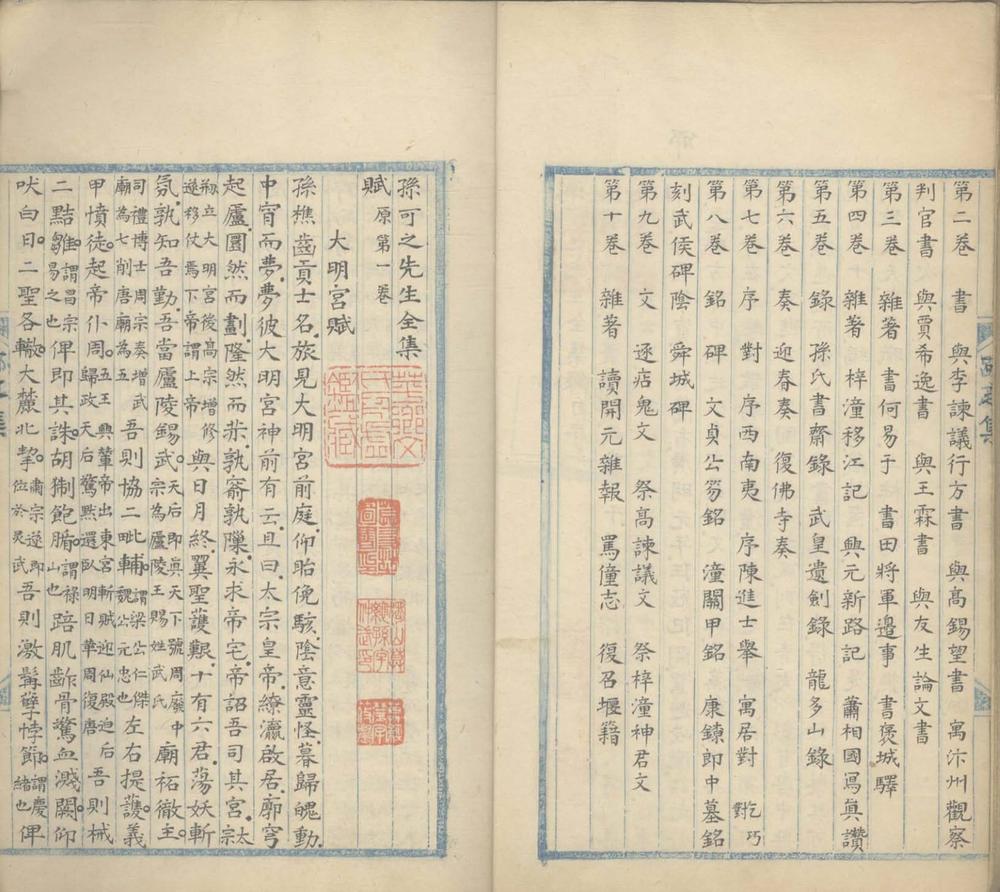 第二卷　書　與李諫議行方書　與高錫望書　寓汴州觀察
判官書　與賈希逸書　與王霖書　與友生論文書
第三卷　雜著　書何易于　書田將軍邊事　書褒城驛
第四卷　雜著　梓潼移江記　興元新路記　蕭相國寫真讚
第五卷　錄　孫氏書齋錄　武皇遺劍錄　龍多山錄
第六卷　奏　迎春奏　復佛寺奏
第七卷　序　對　序西南夷　序陳進士舉　寓居對　乞巧對
第八卷　銘　碑　文貞公笏銘　潼關甲銘　康鐐郎中墓銘
刻武侯碑陰　舜城碑
第九卷　文　逐痁鬼文　祭高諫議文　祭梓潼神君文
第十卷　雜著　讀開元雜報　罵僮志　復召堰籍
孫可之先生全集
賦　原第一卷
大明宮賦
孫樵齒貢士名旅見大明宮前庭仰眙俛駭陰意靈怪暮歸魄動
中宵而夢夢彼大明宮神前有云且曰太宗皇帝繚瀛啟居廓穹
起廬圜然而劃隆然而赤孰窬孰隟永求帝宅帝詔吾司其宮太宗
剏立大明宮後高宗增修
遂移仗焉下帝謂上帝與日月終翼聖護艱十有六君蕩妖斬
氛孰知吾勤吾當廬陵錫武天后即真天下號周廢中
宗為廬陵王賜姓武氏廟祏徹主
司禮博士周宗奏增武
廟為七削唐廟為五吾則協二毗輔謂梁公仁傑
魏公元忠也左右提護義
甲憤徒起帝仆周五王興輦帝出東宮斬賊迎仙殿迫后
歸政天后驚黙還臥明日華周復唐吾則械
二黠雛謂昌宗
易之也俾即其誅胡猘飽腯謂祿
山也踣肌齚骨驚血濺闕仰
吠白日二聖各轍大麓北挚肅宗遂即
位於靈武吾則激髯孽悖節謂慶
緒也俾